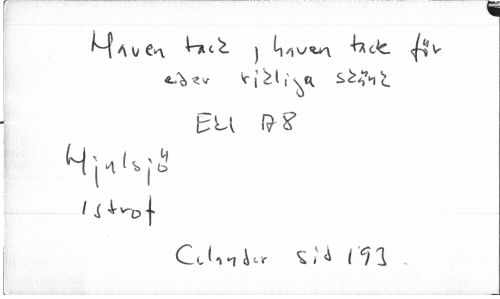 Haven tack, haven tack för
eder rikliga skänk
EKL A8
Hjulsjö
1 strof
Celander sid 193.